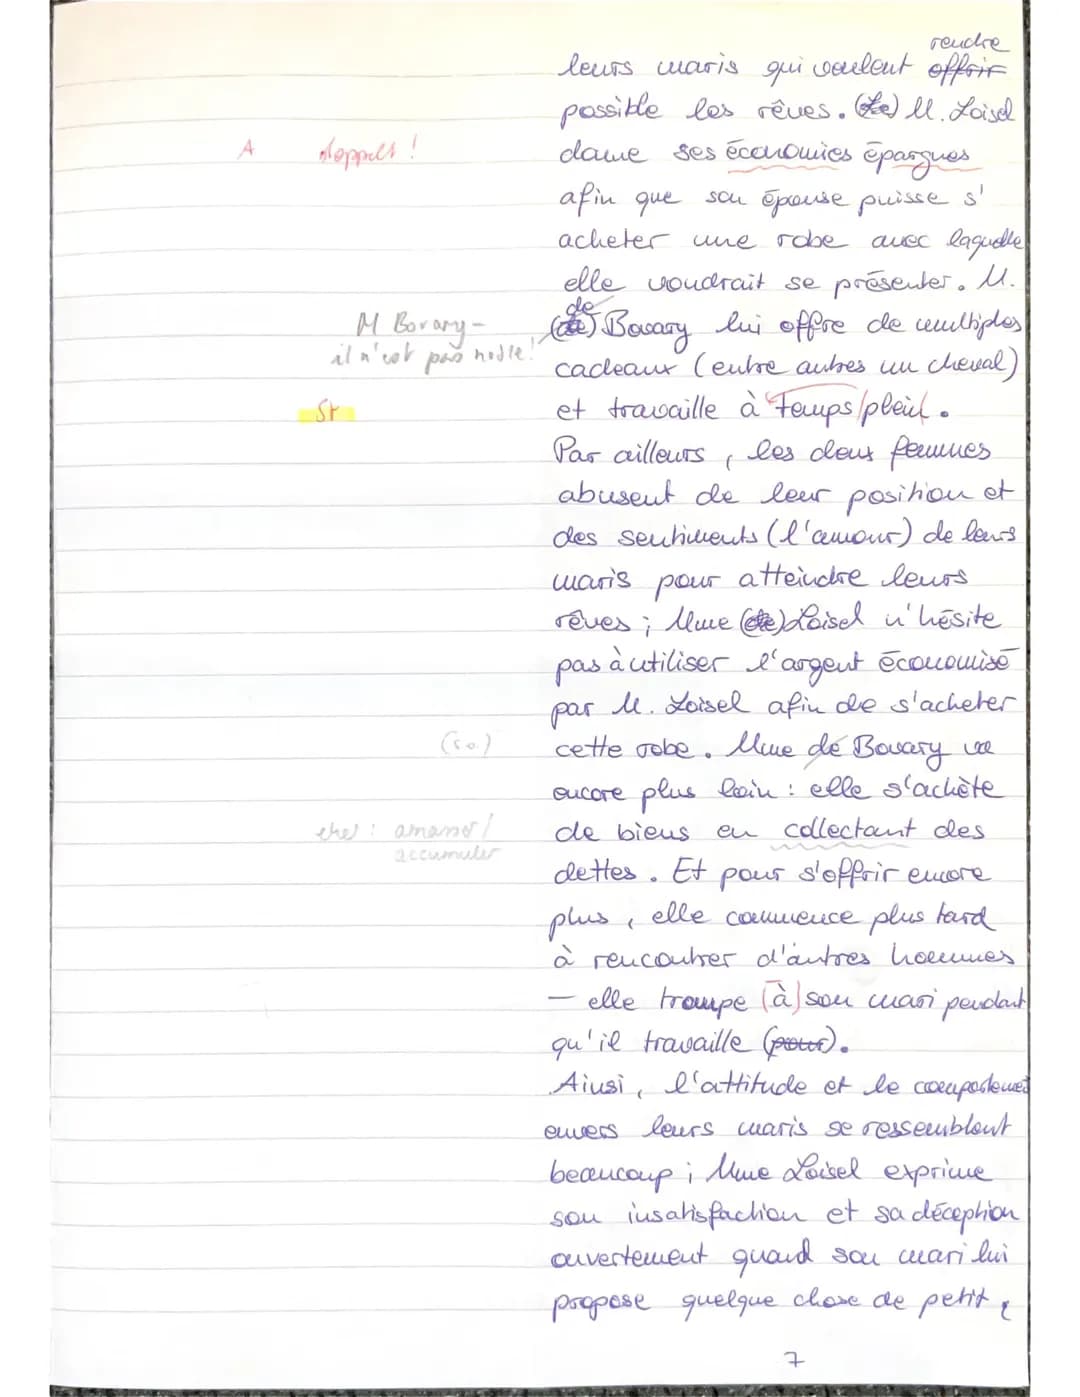 rendre
leurs maris qui veulent offrir
possible les rêves. (Le) M. Loisel
A doppelt !
donne ses économies épargnes
afin que son épouse puisse s'
acheter une robe avec laquelle
elle voudrait se présenter. M.
de
M Bovary -
il n'est pas noble !
(de) Bovary lui offre de multiples
cadeaux (entre autres un cheval)
St
et travaille à temps plein.
Par ailleurs, les deux femmes
abusent de leur position et
des sentiments (l'amour) de leurs
maris pour atteindre leurs
rêves ; Mme (de) Loisel n'hésite
pas à utiliser l'argent économisé
par M. Loisel afin de s'acheter
(s.o.)
cette robe. Mme de Bovary va
encore plus loin : elle s'achète
eher : amasser /
accumuler
de biens en collectant des
dettes. Et pour s'offrir encore
plus, elle commence plus tard
à rencontrer d'autres hommes
— elle trompe (à) son mari pendant
qu'il travaille (pour).
Ainsi, l'attitude et le comportement
envers leurs maris se ressemblent
beaucoup ; Mme Loisel exprime
son insatisfaction et sa déception
ouvertement quand son mari lui
propose quelque chose de petit,
7